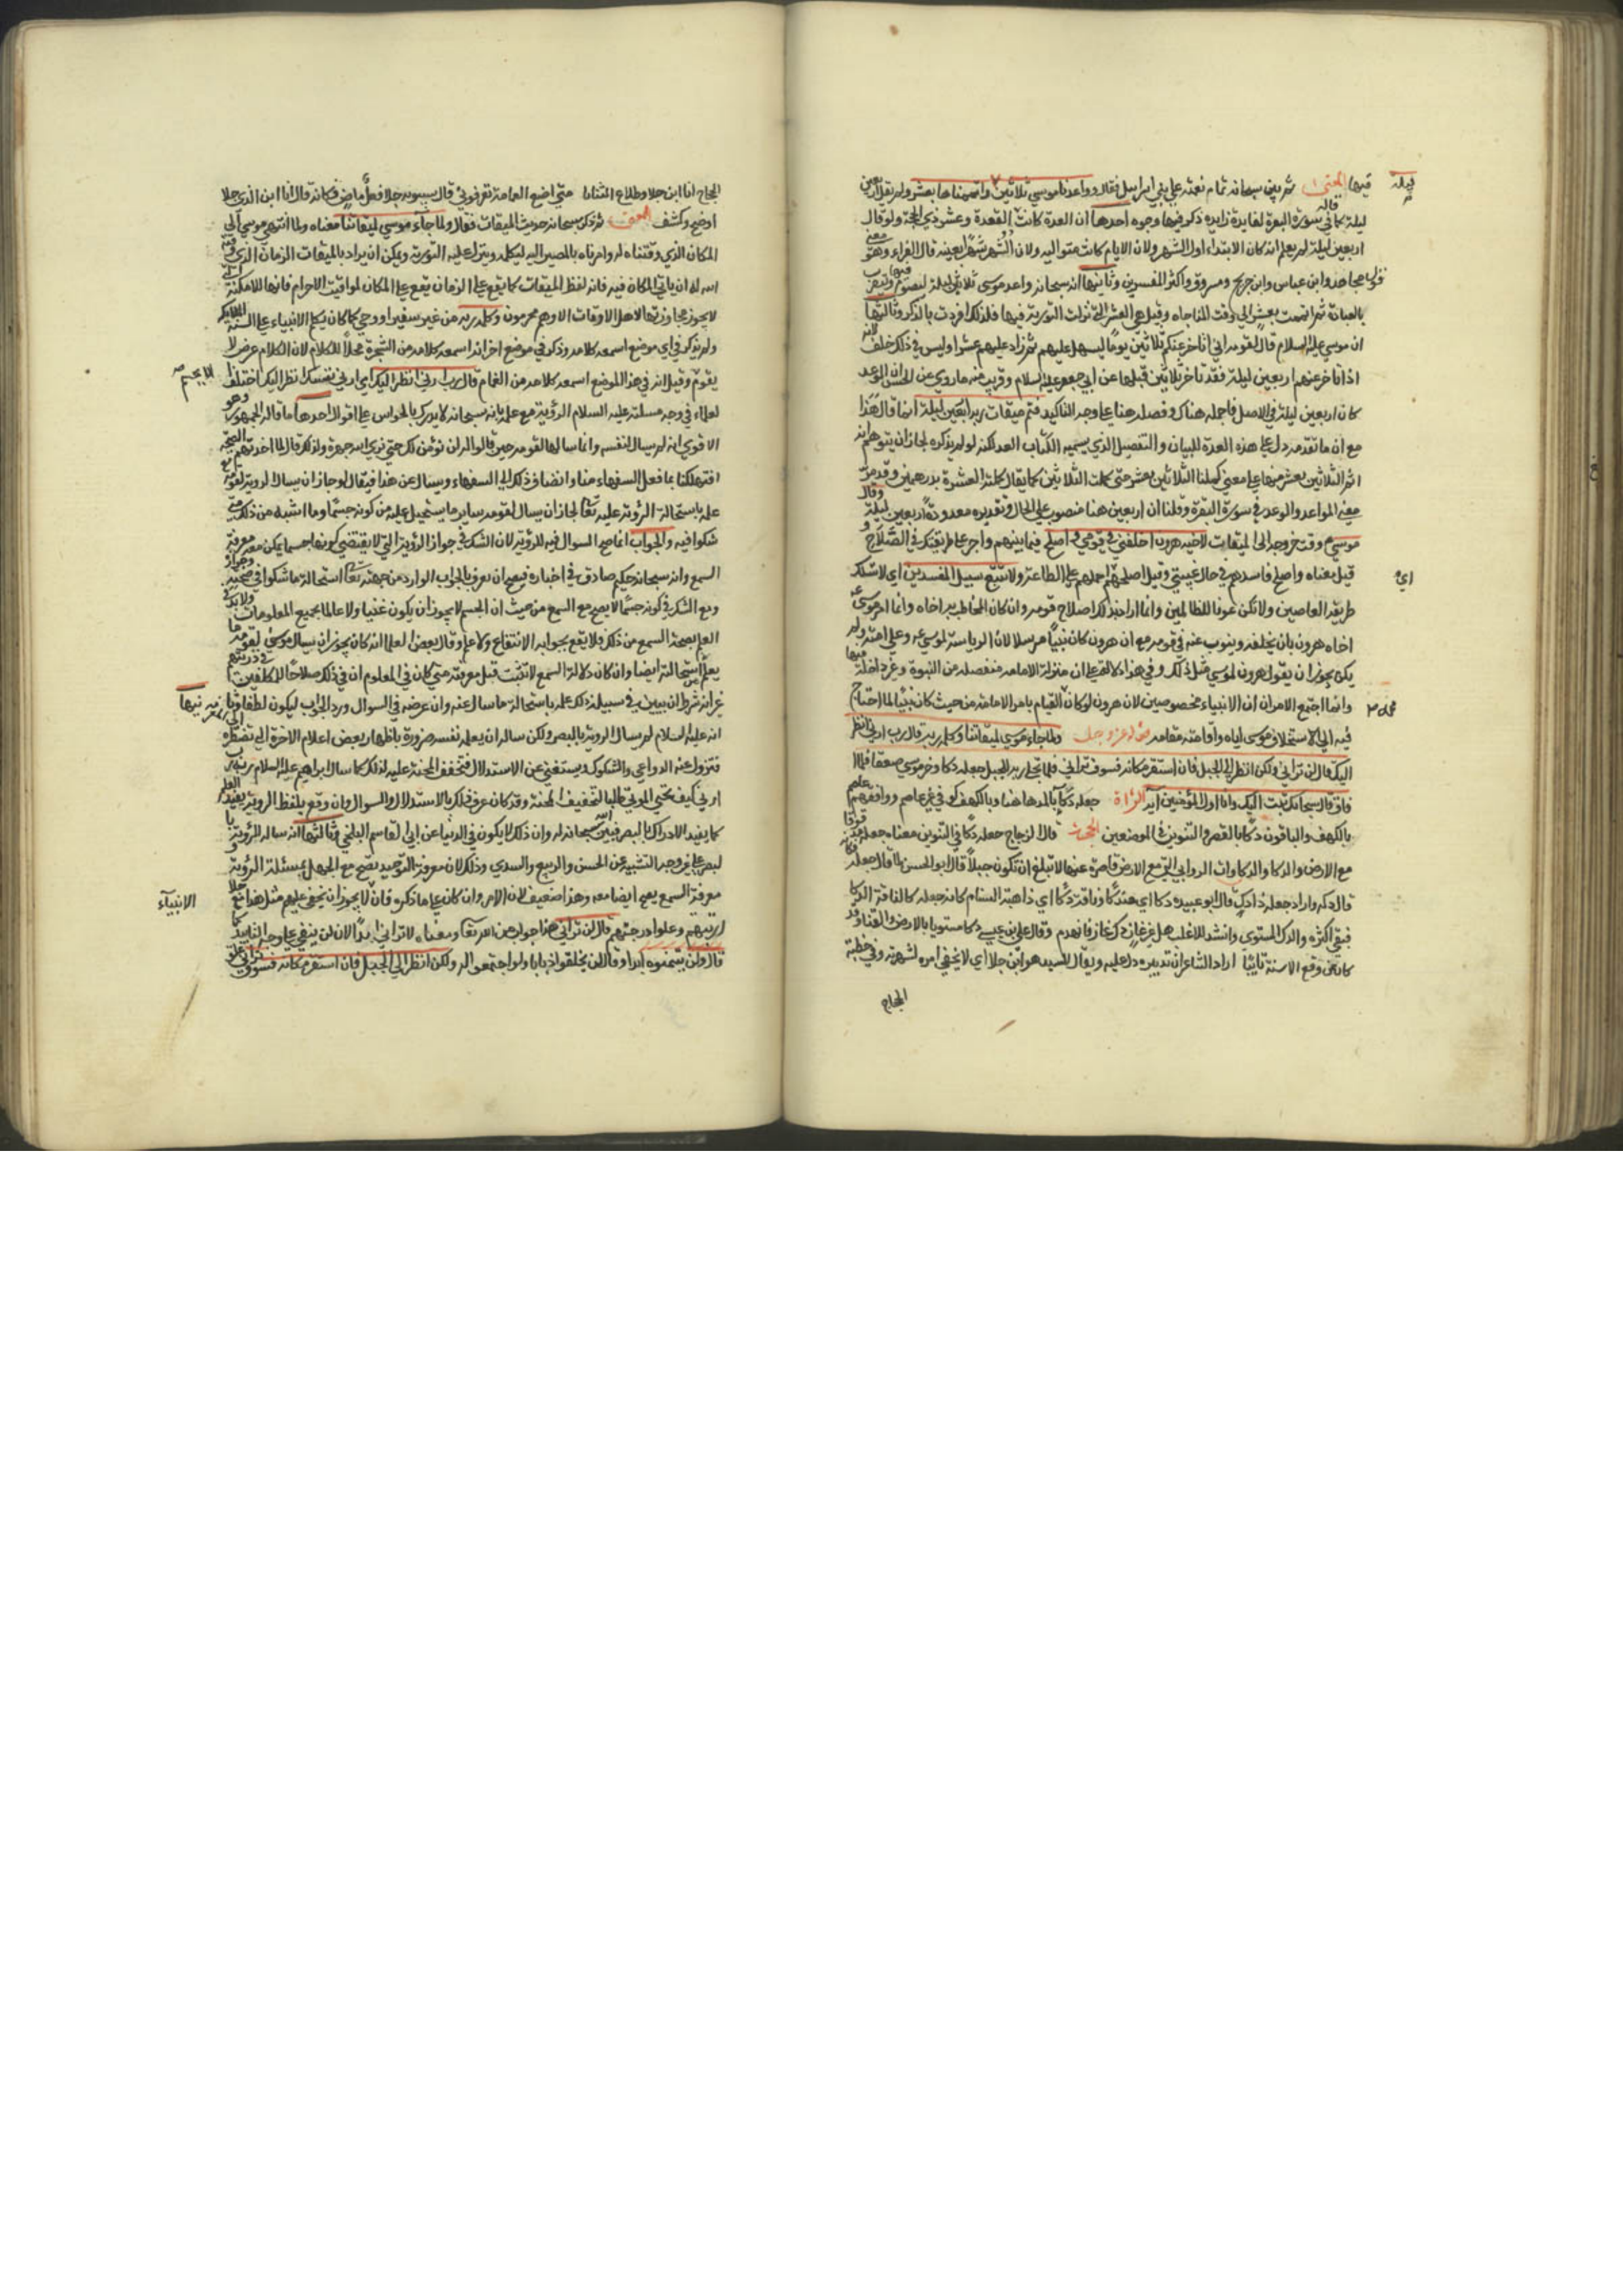 فيها المعنى ثم بين سبحانه تمام نعمته على بني اسرايل فقال وواعدنا موسى ثلاثين ليلة واتممناها بعشر ولم يقل اربعين
ليلة كما قاله في سورة البقرة لفايدة زايدة ذكر فيها وجوه احدها ان العدة كانت ذا القعدة وعشر ذي الحجة ولو قال
اربعين ليلة لم يعلم انه كان الابتداء اول الشهر ولا ان الايام كانت متوالية ولا ان الشهر شهر بعينه قاله الفراء وهو معنى
قول مجاهد وابن عباس وابن جريج ومسروق واكثر المفسرين وثانيها انه سبحانه واعد موسى ثلاثين ليلة ليصوم فيها ويتقرب
بالعبادة ثم اتممت بعشر الى وقت المناجاه وقيل هي العشر التي نزلت التورية فيها فلذلك افردت بالذكر وثالثها
ان موسى عليه السلام قال لقومه اني اتاخر عنكم ثلاثين يوما ليسهل عليهم ثم زاد عليهم عشرا وليس في ذلك خلف لانه
اذا تاخر عنهم اربعين ليلة فقد تاخر ثلاثين قبلها عن ابي جعفر عليه السلام وقريب منه ما روي عن الحسن ان الوعد
كان اربعين ليلة في الاصل فاجمله هناك وفصله هنا على وجه التاكيد فتم ميقات ربه اربعين ليلة انما قال هذا
مع ان ما تقدمه دل على هذه العدة للبيان والتفصيل الذي يسميه الكتاب العدلكة ولو لم يذكره لجاز ان يتوهم انه
اتم الثلاثين بعشر منها على معنى كملنا الثلاثين بعشر حتى كملت الثلاثين كما يقال كملت العشرة بدرهمين وقد مر
معنى المواعد والوعد في سورة البقرة وقلنا ان اربعين هنا منصوب على الحال وتقديره معدودة اربعين ليلة وقال
موسى وقت خروجه الى الميقات لاخيه هرون اخلفني في قومي واصلح فيما بينهم واجر على طريقتك في الصلاح و
قيل معناه واصلح فاسدهم في حال غيبتي وقيل اصلحهم احملهم على الطاعة ولا تتبع سبيل المفسدين اي لا تسلك
طريقة العاصين ولا تكن عونا للظالمين وانما اراد بذلك اصلاح قومه وان كان المخاطب به اخاه وانما امر موسى
اخاه هرون بان يخلفه وينوب عنه في قومه مع ان هرون كان نبيا مرسلا لان الرياسة لموسى عليه وعلى امته ولم
يكن يجوز ان يقول هرون لموسى مثل ذلك وفي هذا دلالة على ان منزلة الامامة منفصلة من النبوة وغير داخلة فيها
وانما اجتمع الامران ان الانبياء مخصوصين لان هرون لو كان القيام بامر الامامة من حيث كان نبيا لما احتاج
فيه الى الاستخلاف موسى اياه واقامته مقامه قوله عز وجل ولما جاء موسى لميقاتنا وكلمه ربه قال رب ارني انظر
اليك قال لن تراني ولكن انظر الى الجبل فان استقر مكانه فسوف تراني فلما تجلى ربه للجبل جعله دكا وخر موسى صعقا فلما
افاق قال سبحانك تبت اليك وانا اول المؤمنين آية القراة جعله دكاء بالمد ها هنا وبالكهف كوفي غير عاصم ووافقهم عاصم
بالكهف والباقون دكا بالقصر والتنوين في الموضعين الحجة قال الزجاج جعله دكا في التنوين معناه جعله مدقوقا
مع الارض والدكا والدكاوات الروابي التي مع الارض ناشزة عنها لا تبلغ ان تكون جبلا قال ابو الحسن لما قال جعله
قال دكه واراد جعله ذا دك قال ابو عبيده دكا اي مندكا وناقة دكا اي ذاهبة السنام كانه جعله كالناقة الدكا
فبقي اكثره والدك المستوي وانشد للاغلب هل غير غار دك غارا فانهدم وقال علي بن عيسى دكا مستويا بالارض
اراد الشاعر ان تدبيره دل عليه ويقال للسيد هو ابن جلا اي لا يخفى امره لشهرته وفي خطبة
الحجاج
الحجاج انا ابن جلا وطلاع الثنايا متى اضع العمامة تعرفوني قال سيبويه جلا فعل ماض فكانه قال انا ابن الذي جلا
اوضح وكشف المعنى ثم ذكر سبحانه حديث الميقات فقال ولما جاء موسى لميقاتنا معناه ولما انتهى موسى الى
المكان الذي وقتناه له وامرناه بالمصير اليه ليكلمه وينزل عليه التورية ويمكن ان يراد بالميقات الزمان الذي وقته
الله له ان ياتي المكان فيه فانه لفظ الميقات كما يقع على الزمان يقع على المكان لمواقيت الاحرام فانها للامكنة التي
لا يجوز مجاوزتها لاهل الافاق الا وهم محرمون وكلمه ربه من غير سفير او وحي كما كان يكلم الانبياء على السنة الملايكة
ولم يذكر في اي موضع اسمعه كلامه وذكر في موضع اخر انه اسمعه كلامه من الشجرة محلا للكلام لان الكلام عرض لا
يقوم الا بجسم وقيل انه في هذا الموضع اسمعه كلامه من الغمام قال رب ارني انظر اليك اي ارني نفسك انظر اليك اختلف
لعلماء في وجه مسئلته عليه السلام الرؤية مع علمه بانه سبحانه لا يدرك بالحواس على اقوال احدها ما قاله الجمهور وهو
الاقوى انه لم يسال لنفسه وانما سالها لقومه حين قالوا له لن نؤمن لك حتى نرى الله جهرة ولذلك قال لما اخذتهم الرجفة
اتهلكنا بما فعل السفهاء منا واضاف ذلك الى السفهاء ويسال عن هذا فيقال لو جاز ان يسال الرؤية لقومه مع
علمه باستحالة الرؤية عليه تعالى لجاز ان يسال لقومه ساير ما يستحيل عليه من كونه جسما وما اشبه من ذلك متى
شكوا فيه والجواب انما صح السوال فيه للرؤية لان الشك في جواز الرؤية التي لا يقتضي كونها جسما يمكن معه معرفة
السمع وانه سبحانه حكيم صادق في اخباره فيصح ان نعرف بالجواب الوارد من جهته تعالى استحالة ما شكوا في صحته وجوازه
ومع الشك في كونه جسما لا يصح مع السمع من حيث ان الجسم لا يجوز ان يكون غنيا ولا عالما بجميع المعلومات ولا بد في
العلم بصحة السمع من ذلك فلا يقع بجوابه الانتفاع ولا علم وقال بعض العلما انه كان يجوز ان يسال موسى لقومه ما
يعلم استحالته ايضا وان كان دلالة السمع لا تثبت قبل معرفته متى كان في المعلوم ان في ذلك صلاحا للمكلفين في دينهم
غير انه شرط ان يبين في مسئلته ذلك علمه باستحالة ما سال عنه وان غرضه في السوال ورد الجواب ليكون لطفا وثانيها
انه عليه السلام لم يسال الرؤية بالبصر ولكن ساله ان يعلمه نفسه ضرورة باظهار بعض اعلام الاخرة التي تضطره الى المعرفة
فتزول عنه الدواعي والشكوك ويستغني عن الاستدلال فتخفف المحنة عليه لذلك كما سال ابراهيم عليه السلام رب
ارني كيف تحيي الموتى طالبا لتخفيف المحنة وقد كان عرف ذلك بالاستدلال والسوال وان وقع بلفظ الروية يفيد العلم
كما يفيد الادراك بالبصر فبين الله سبحانه له وان ذلك لا يكون في الدنيا عن ابي القاسم البلخي وثالثها انه ساله الرؤية با
لبصر على غير وجه التشبيه عن الحسن والربيع والسدي وذلك لان معرفة التوحيد تصح مع الجهل بمسئلة الرؤية و
معرفة السمع يصح ايضا معه وهذا ضعيف لان الامر وان كان على ما ذكروه فان لا يجوز ان يخفى عليهم مثل هذا مع جلالة
الانبياء
رتبتهم وعلو درجتهم قال لن تراني هذا جواب من الله تعالى ومعناه لا تراني ابدا لان لن ينفي على وجه التابيد كما
قال ولن يتمنوه ابدا وقال لن يخلقوا ذبابا ولو اجتمعوا له ولكن انظر الى الجبل فان استقر مكانه فسوف تراني علق